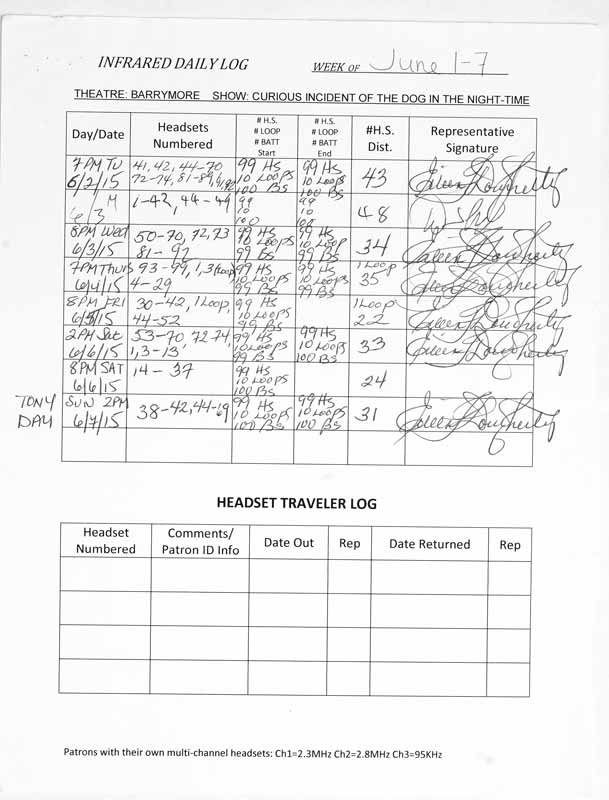 INFRARED DAILY LOG WEEK OF June 1-7
THEATRE: BARRYMORE SHOW: CURIOUS INCIDENT OF THE DOG IN THE NIGHT-TIME
Day/Date
Headsets
Numbered
# H.S.
# LOOP
# BATT
Start
# H.S.
# LOOP
# BATT
End
#H.S.
Dist.
Representative
Signature
7PM TU
6/2/15
41, 42, 44-70
72-74, 81-89, 91, 92
99 HS
10 LOOPS
100 BS
99 HS
10 LOOPS
100 BS
43
Eileen Dougherty
M
6/3
1-42, 44-49
99
10
100
99
10
100
48
8PM Wed
6/3/15
50-70, 72, 73
81-92
99 HS
10 LOOPS
99 BS
99 HS
10 LOOP
99 BS
34
Eileen Dougherty
7PM Thurs
6/4/15
93-99, 1, 3 (Loop)
4-29
99 HS
10 LOOPS
99 BS
99 HS
10 LOOPS
99 BS
1 Loop
35
Eileen Dougherty
8PM FRI
6/5/15
30-42, 1 Loop,
44-52
99 HS
10 LOOPS
99 BS
1 Loop
22
Eileen Dougherty
2PM Sat
6/6/15
53-70, 72-74,
1, 3-13
99 HS
10 LOOPS
99 BS
99 HS
10 LOOPS
100 BS
33
Eileen Dougherty
8PM SAT
6/6/15
14-37
99 HS
10 LOOPS
100 BS
24
TONY
DAY
SUN 2PM
6/7/15
38-42, 44-69
99 HS
10 LOOPS
100 BS
99 HS
10 LOOPS
100 BS
31
Eileen Dougherty
HEADSET TRAVELER LOG
Headset
Numbered
Comments/
Patron ID Info
Date Out
Rep
Date Returned
Rep
Patrons with their own multi-channel headsets: Ch1=2.3MHz Ch2=2.8MHz Ch3=95KHz